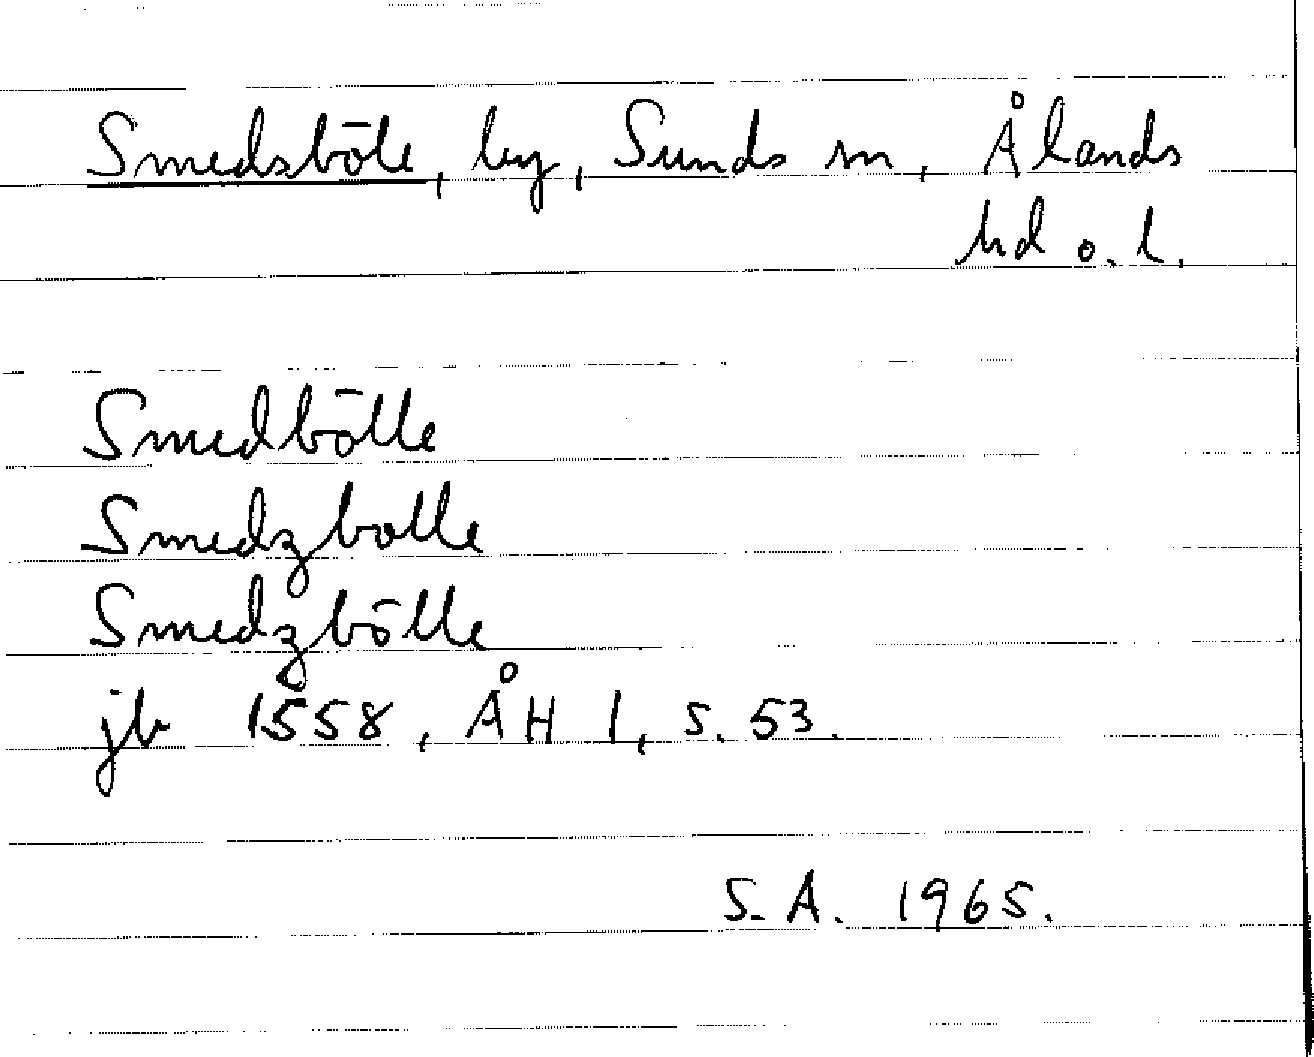 Smedsböle, by, Sunds sn, Ålands
hd o. l.
Smedbölle
Smedzbolle
Smedzbölle
jb 1558, ÅH I, s. 53.
S.A. 1965.